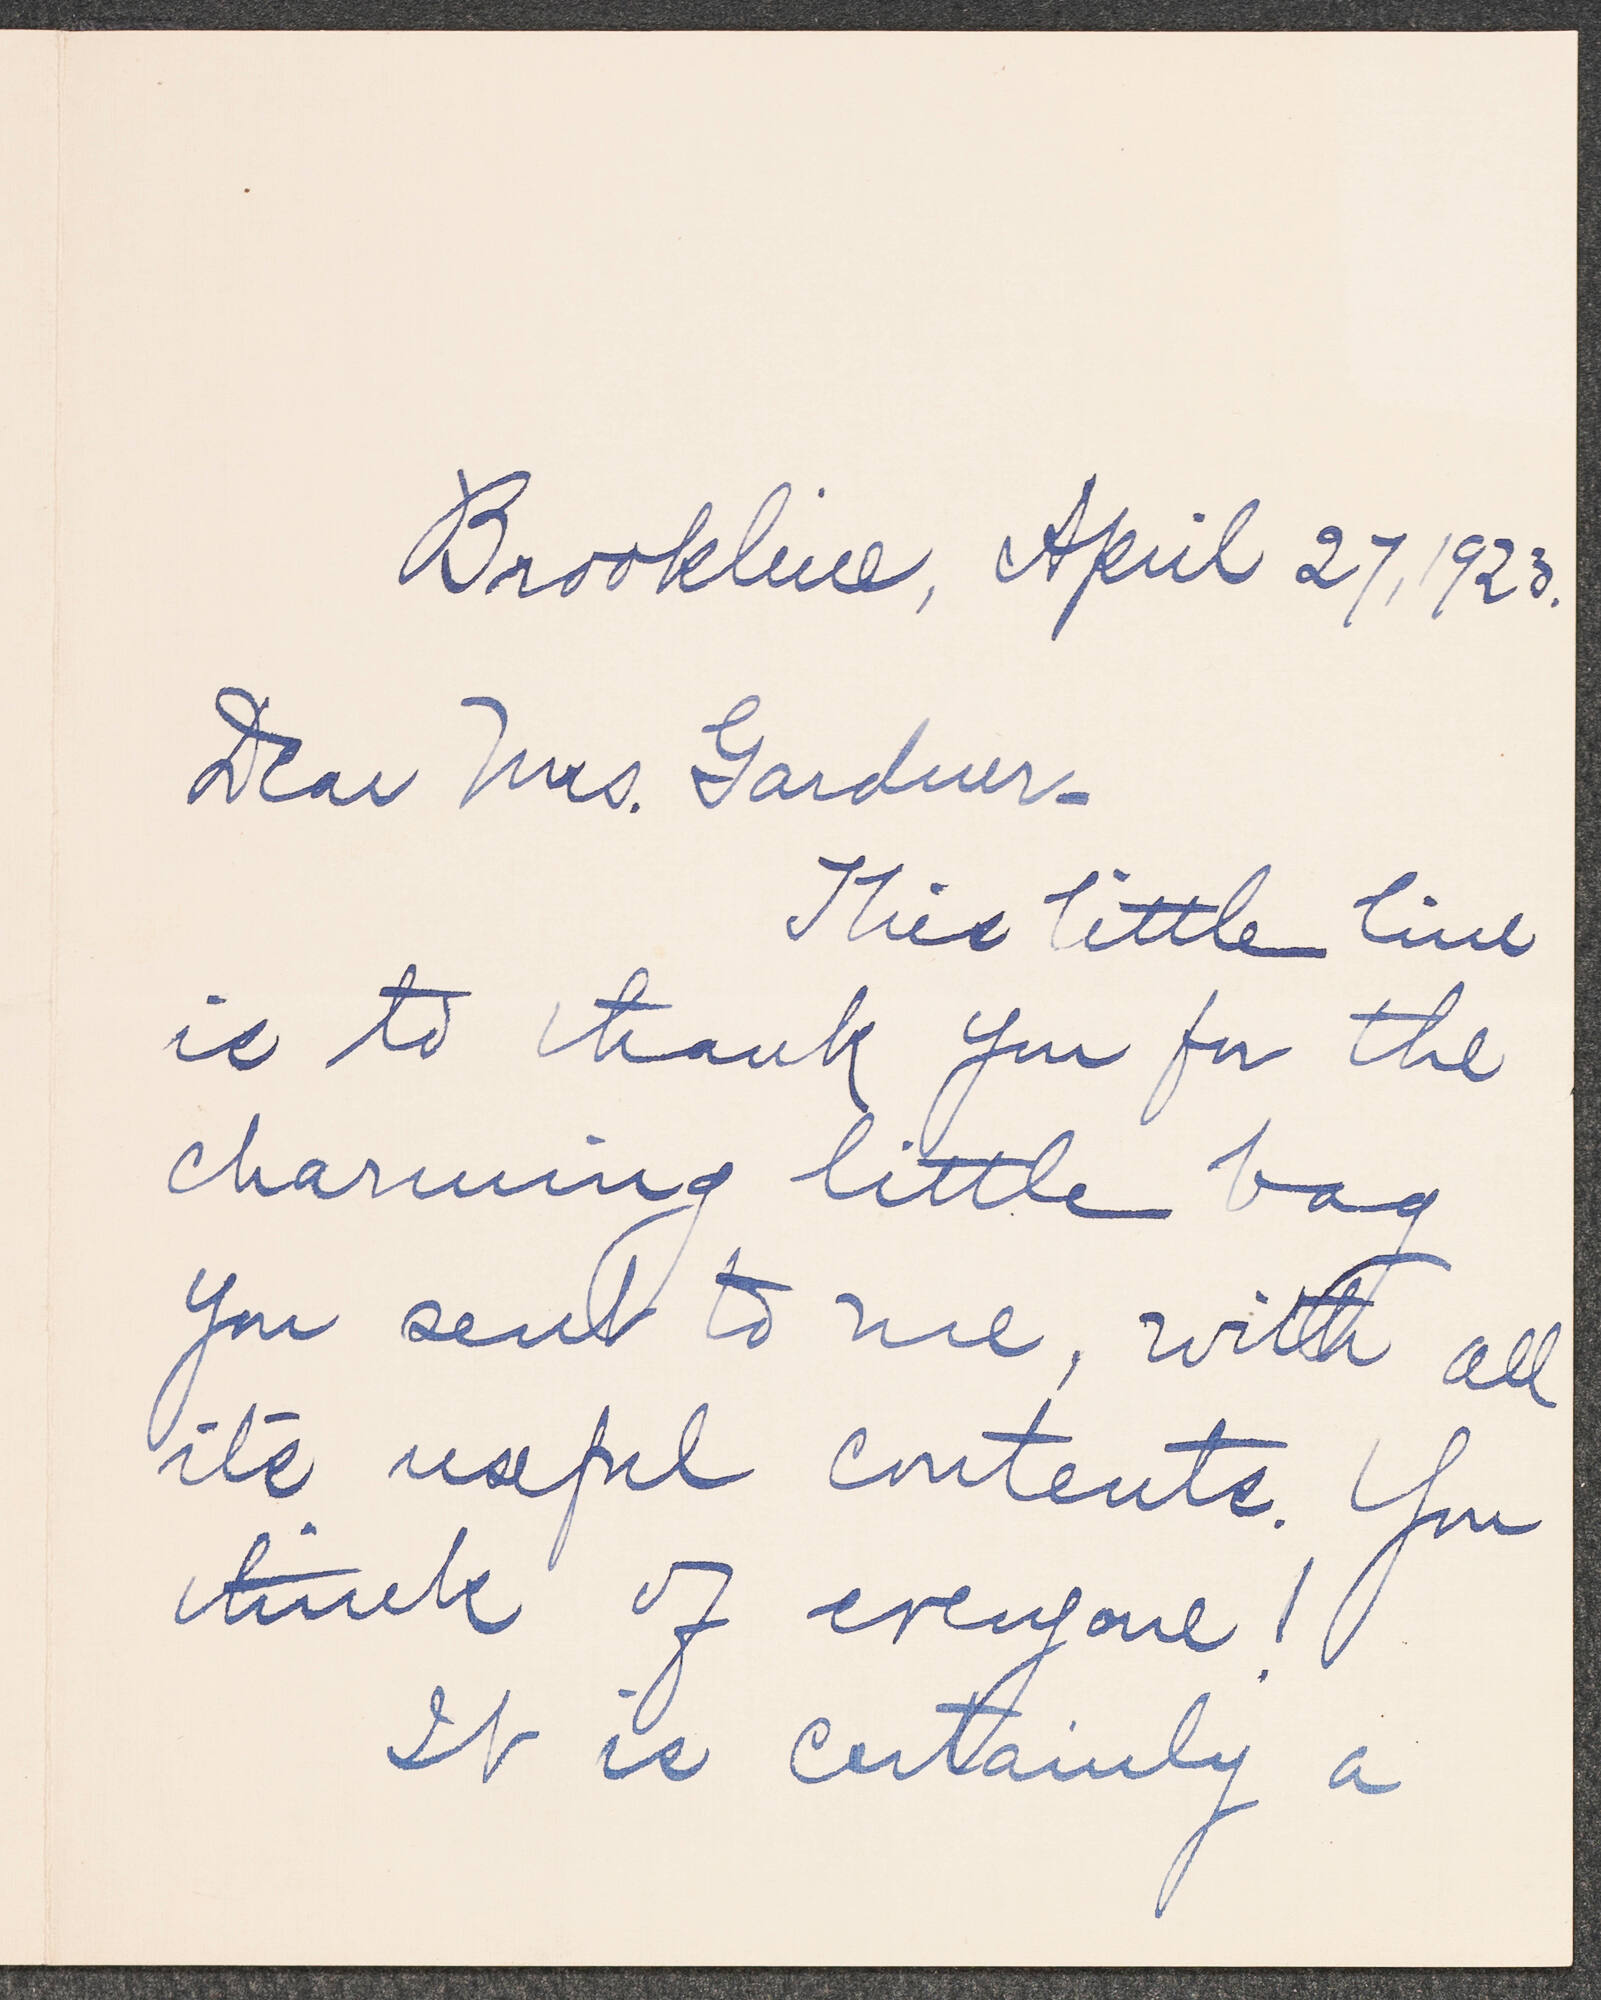 Brookline, April 27, 1923.
Dear Mrs. Gardner-
This little line
is to thank you for the
charming little bag
you sent to me, with all
its useful contents. You
think of everyone!
It is certainly a